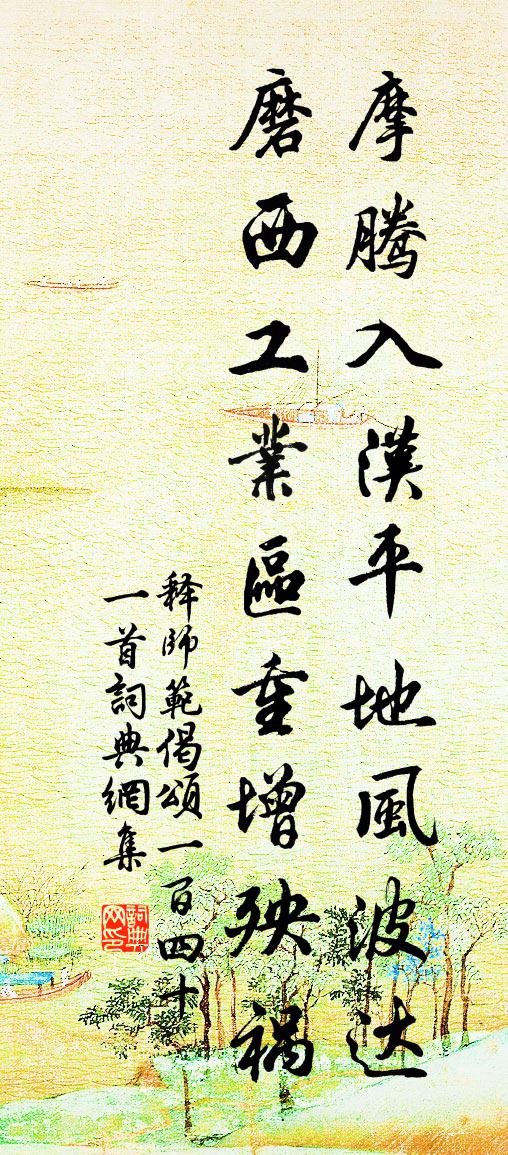 摩腾入漢平地風波达
磨西工業區重增殃禍
释師範偈頌一百四十
一首詞典網集
詞典网印